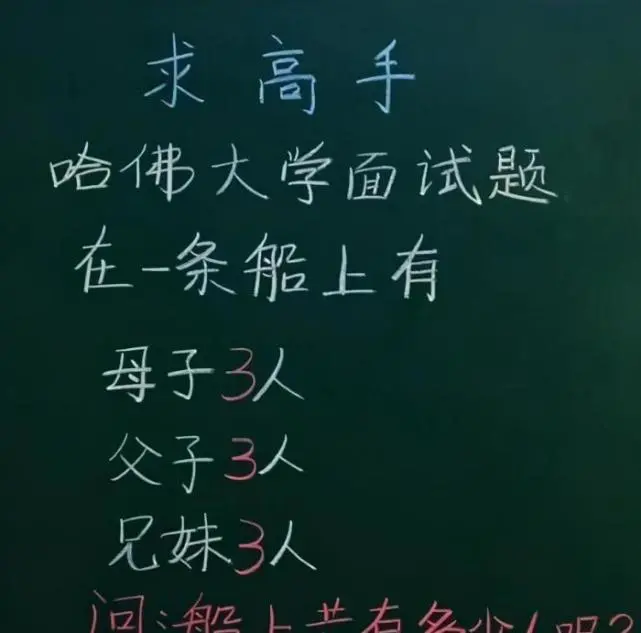 求高手
哈佛大学面试题
在一条船上有
母子3人
父子3人
兄妹3人
问:船上共有多少人呢?